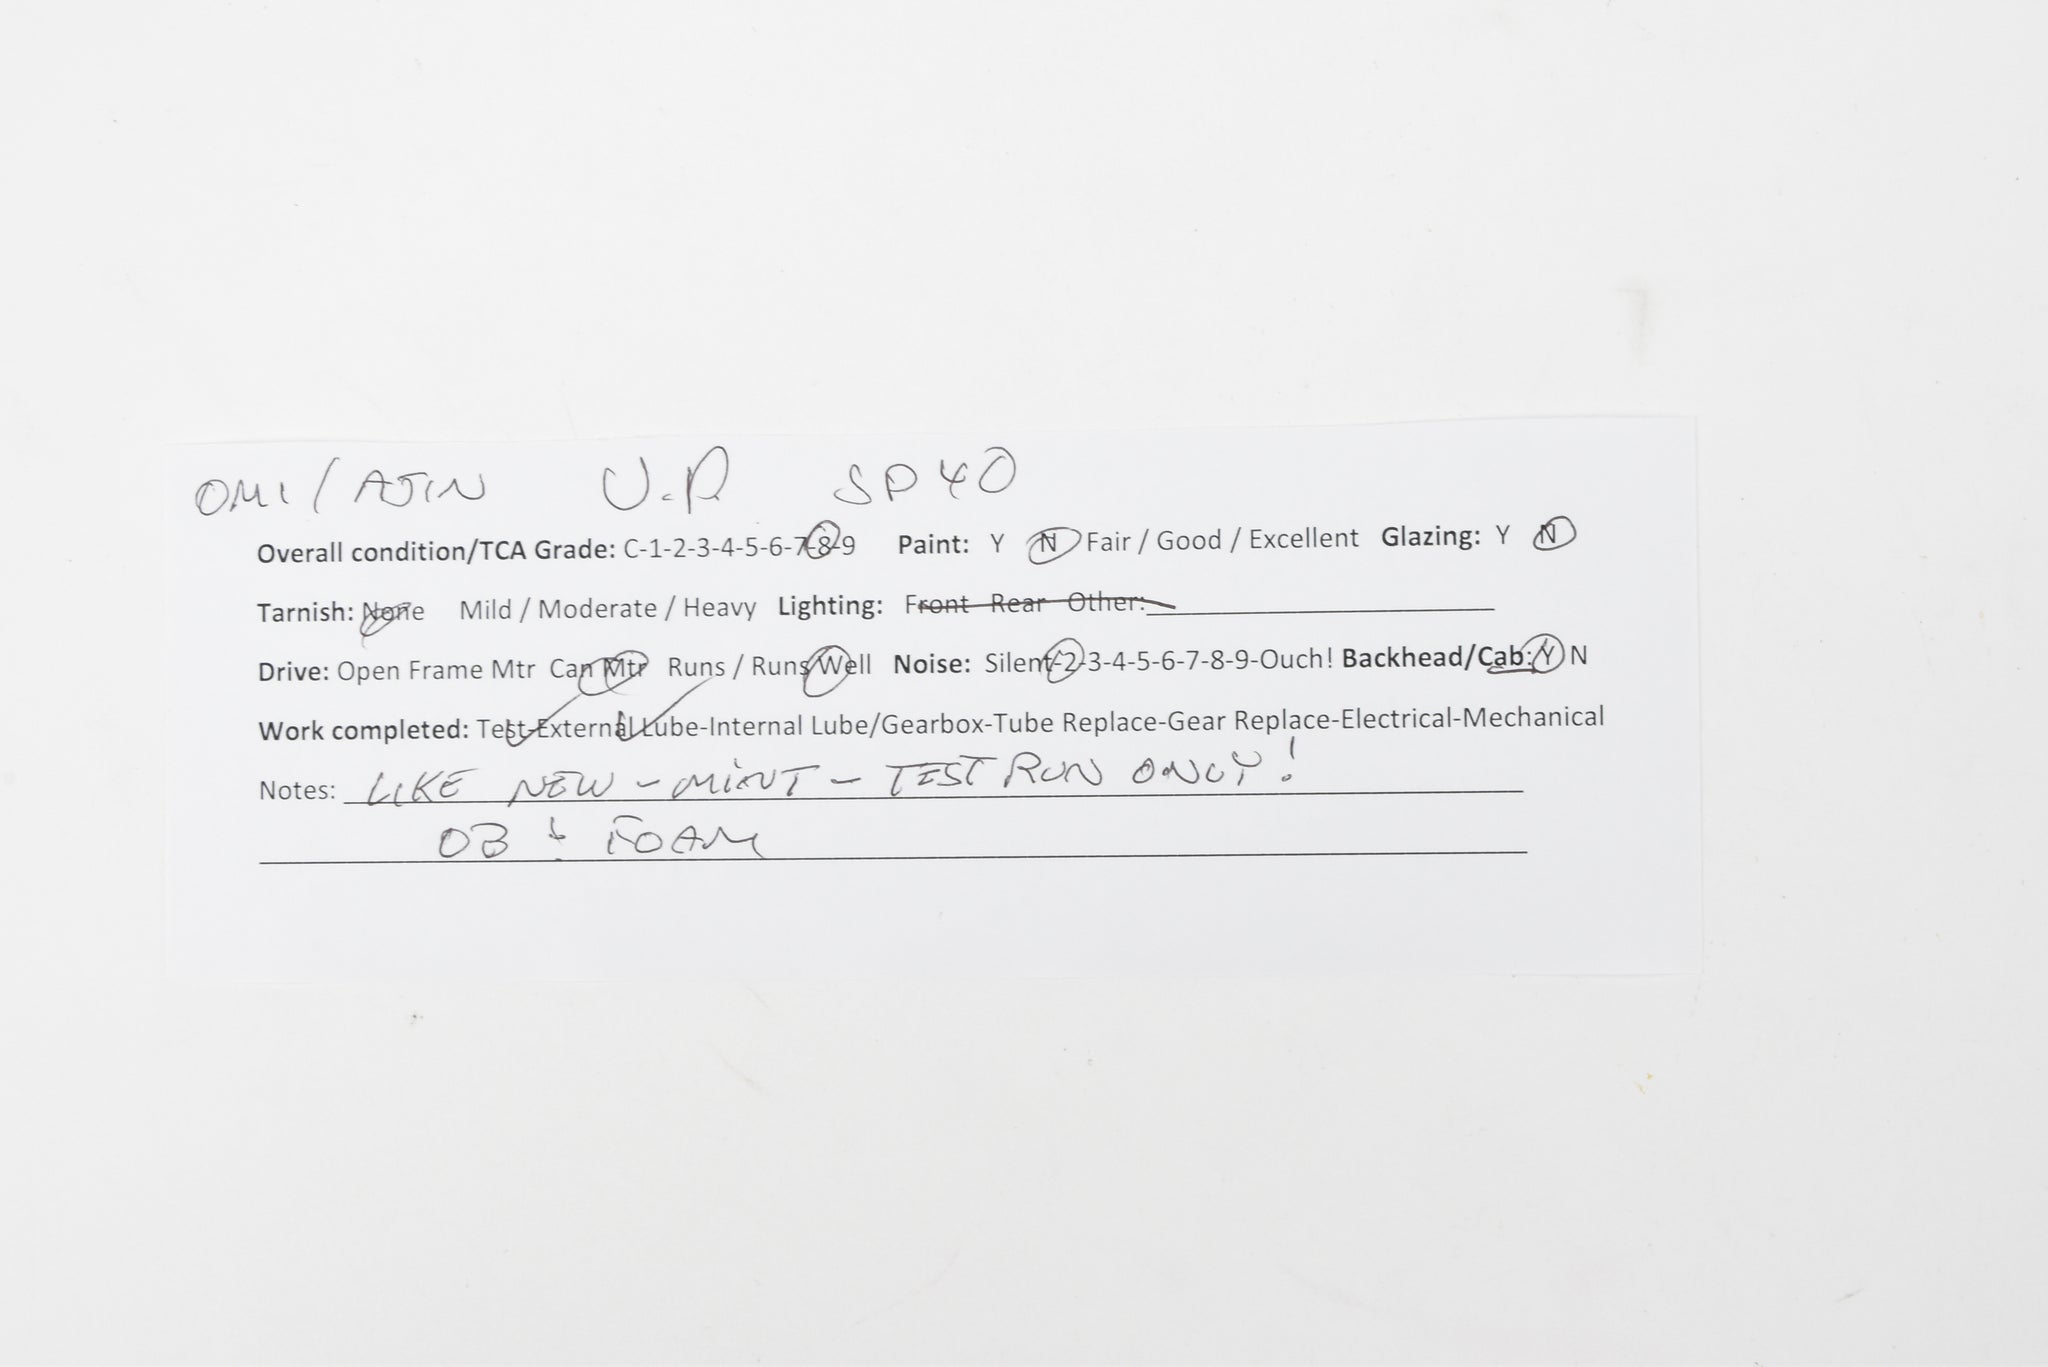 OMI / AJIN U.P. SP40
Overall condition/TCA Grade: C-1-2-3-4-5-6-7-8-9 Paint: Y N Fair / Good / Excellent Glazing: Y N
Tarnish: None Mild / Moderate / Heavy Lighting: Front Rear Other:
Drive: Open Frame Mtr Can Mtr Runs / Runs Well Noise: Silent-2-3-4-5-6-7-8-9-Ouch! Backhead/Cab: Y N
Work completed: Test-External Lube-Internal Lube/Gearbox-Tube Replace-Gear Replace-Electrical-Mechanical
Notes: LIKE NEW - MINT - TEST RUN ONLY!
OB & FOAM